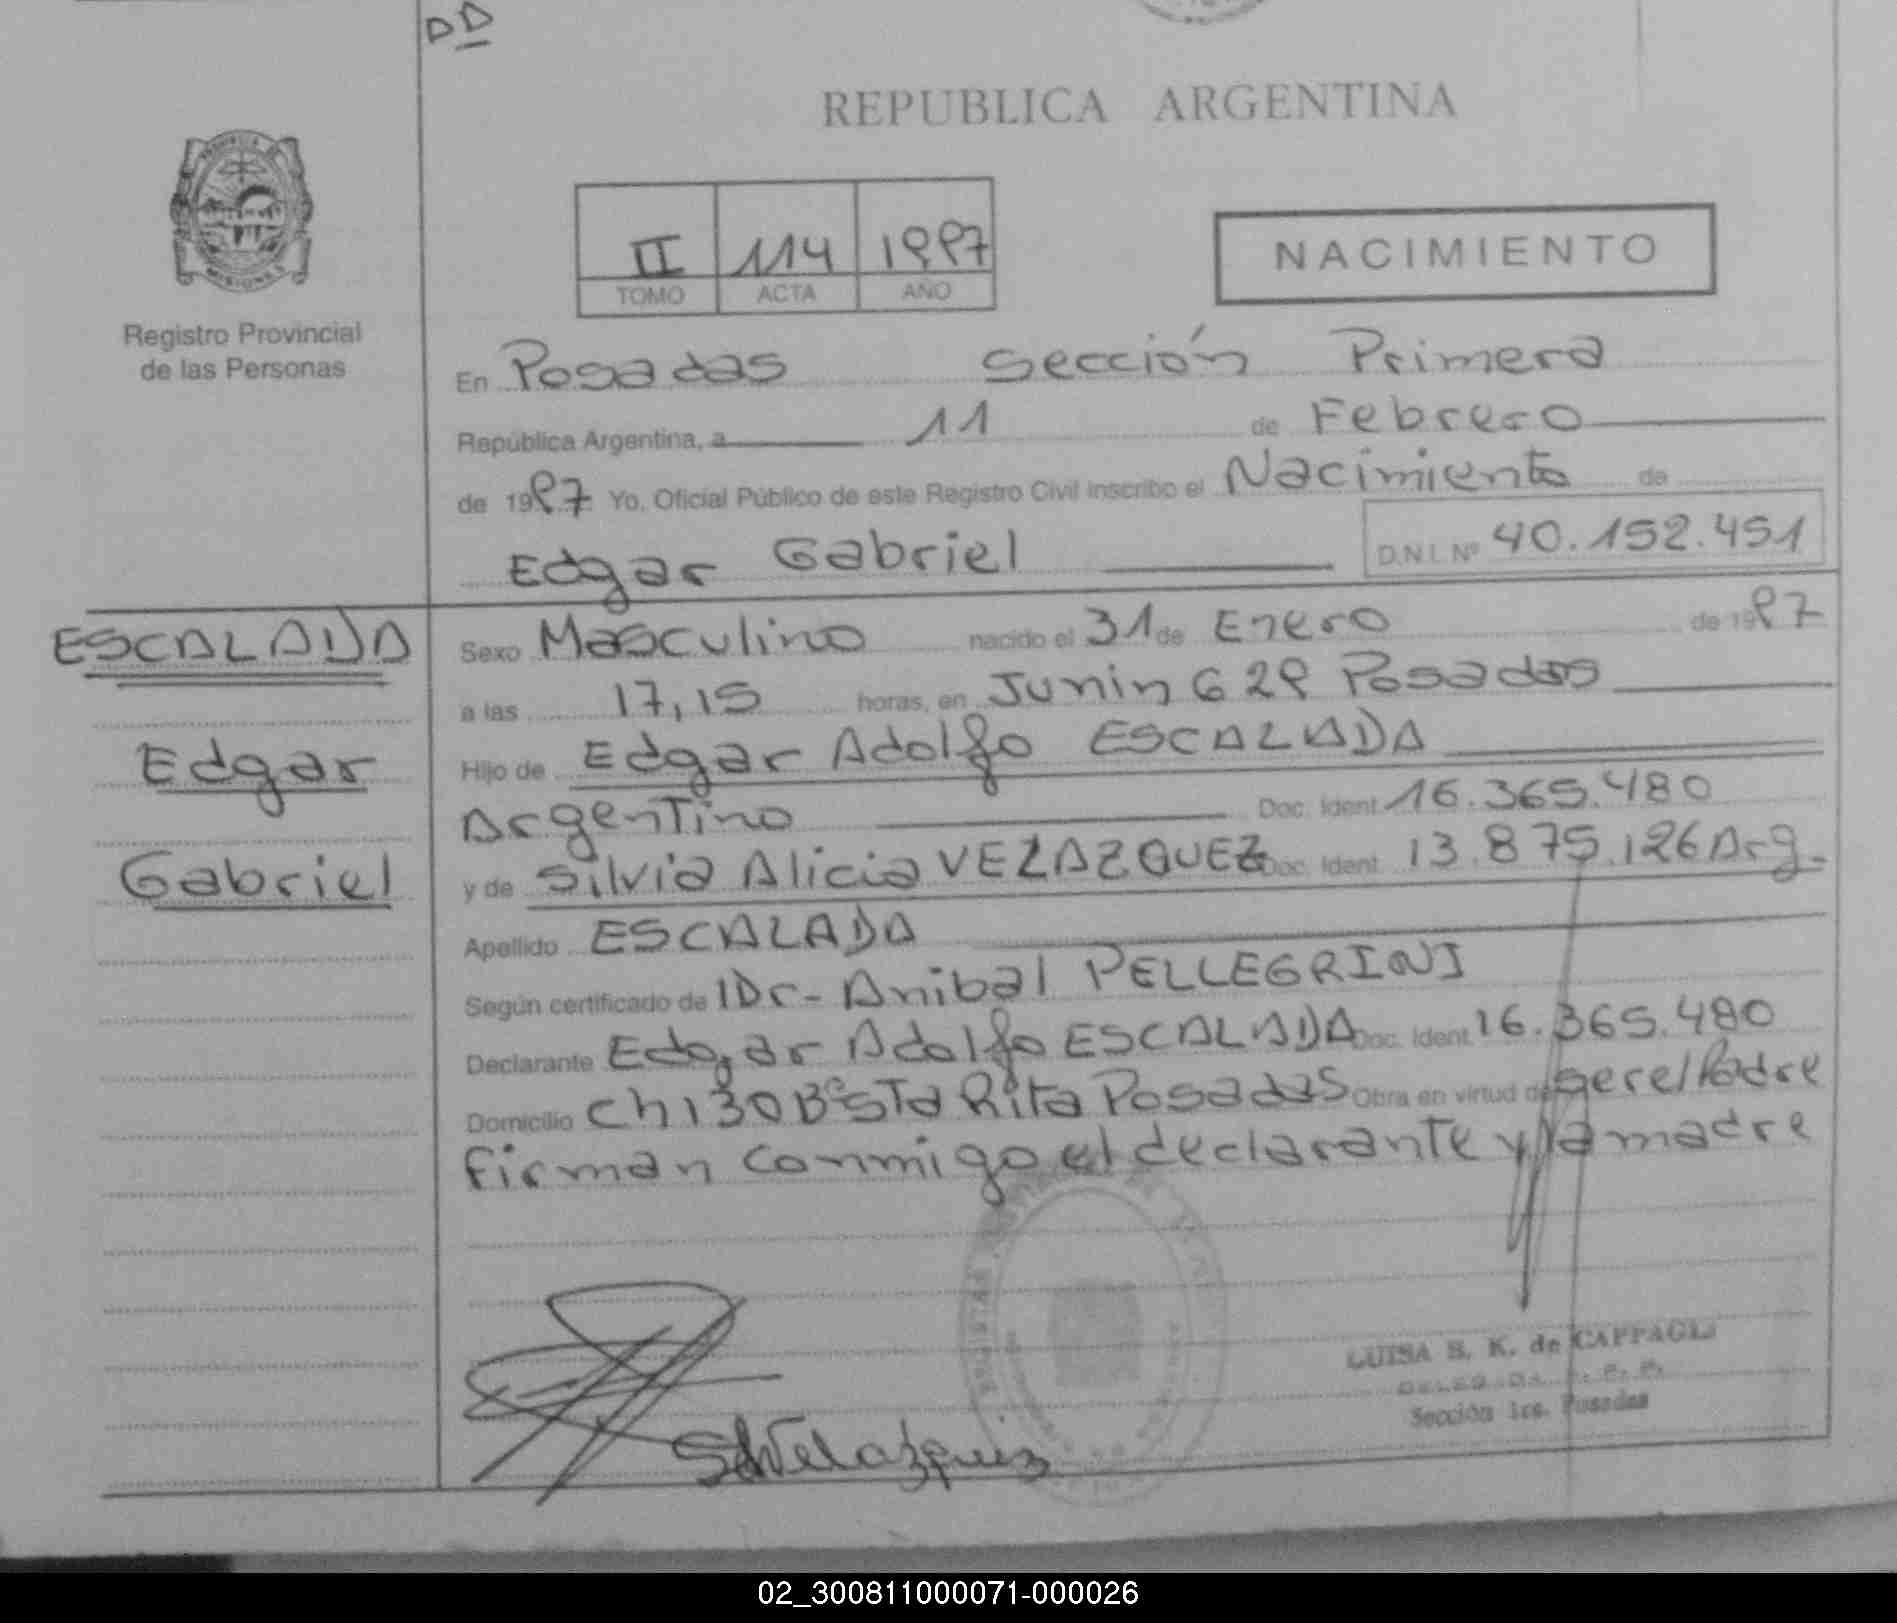 DD
REPUBLICA ARGENTINA
PROVINCIA DE
MISIONES
Registro Provincial
de las Personas
II 114 1997
TOMO ACTA AÑO
NACIMIENTO
En Posadas Sección Primera
República Argentina, a 11 de Febrero
de 1997 Yo, Oficial Público de este Registro Civil inscribo el Nacimiento de
Edgar Gabriel D.N.I. Nº 40.152.451
ESCALADA
Edgar
Gabriel
Sexo Masculino nacido el 31 de Enero de 1997
a las 17,15 horas, en Junin 629 Posadas
Hijo de Edgar Adolfo ESCALADA
Argentino Doc. Ident. 16.365.480
y de Silvia Alicia VELAZQUEZ Doc. Ident. 13.875.126 Arg.
Apellido ESCALADA
Según certificado de Dr. Anibal PELLEGRINI
Declarante Edgar Adolfo ESCALADA Doc. Ident. 16.365.480
Domicilio Ch 130 Bº Sta Rita Posadas Obra en virtud de ser el Padre
Firman conmigo el declarante y la madre
SAVelazquez
LUISA S. K. de CAPPAGLI
Sección 1ra. Posadas
02_300811000071-000026